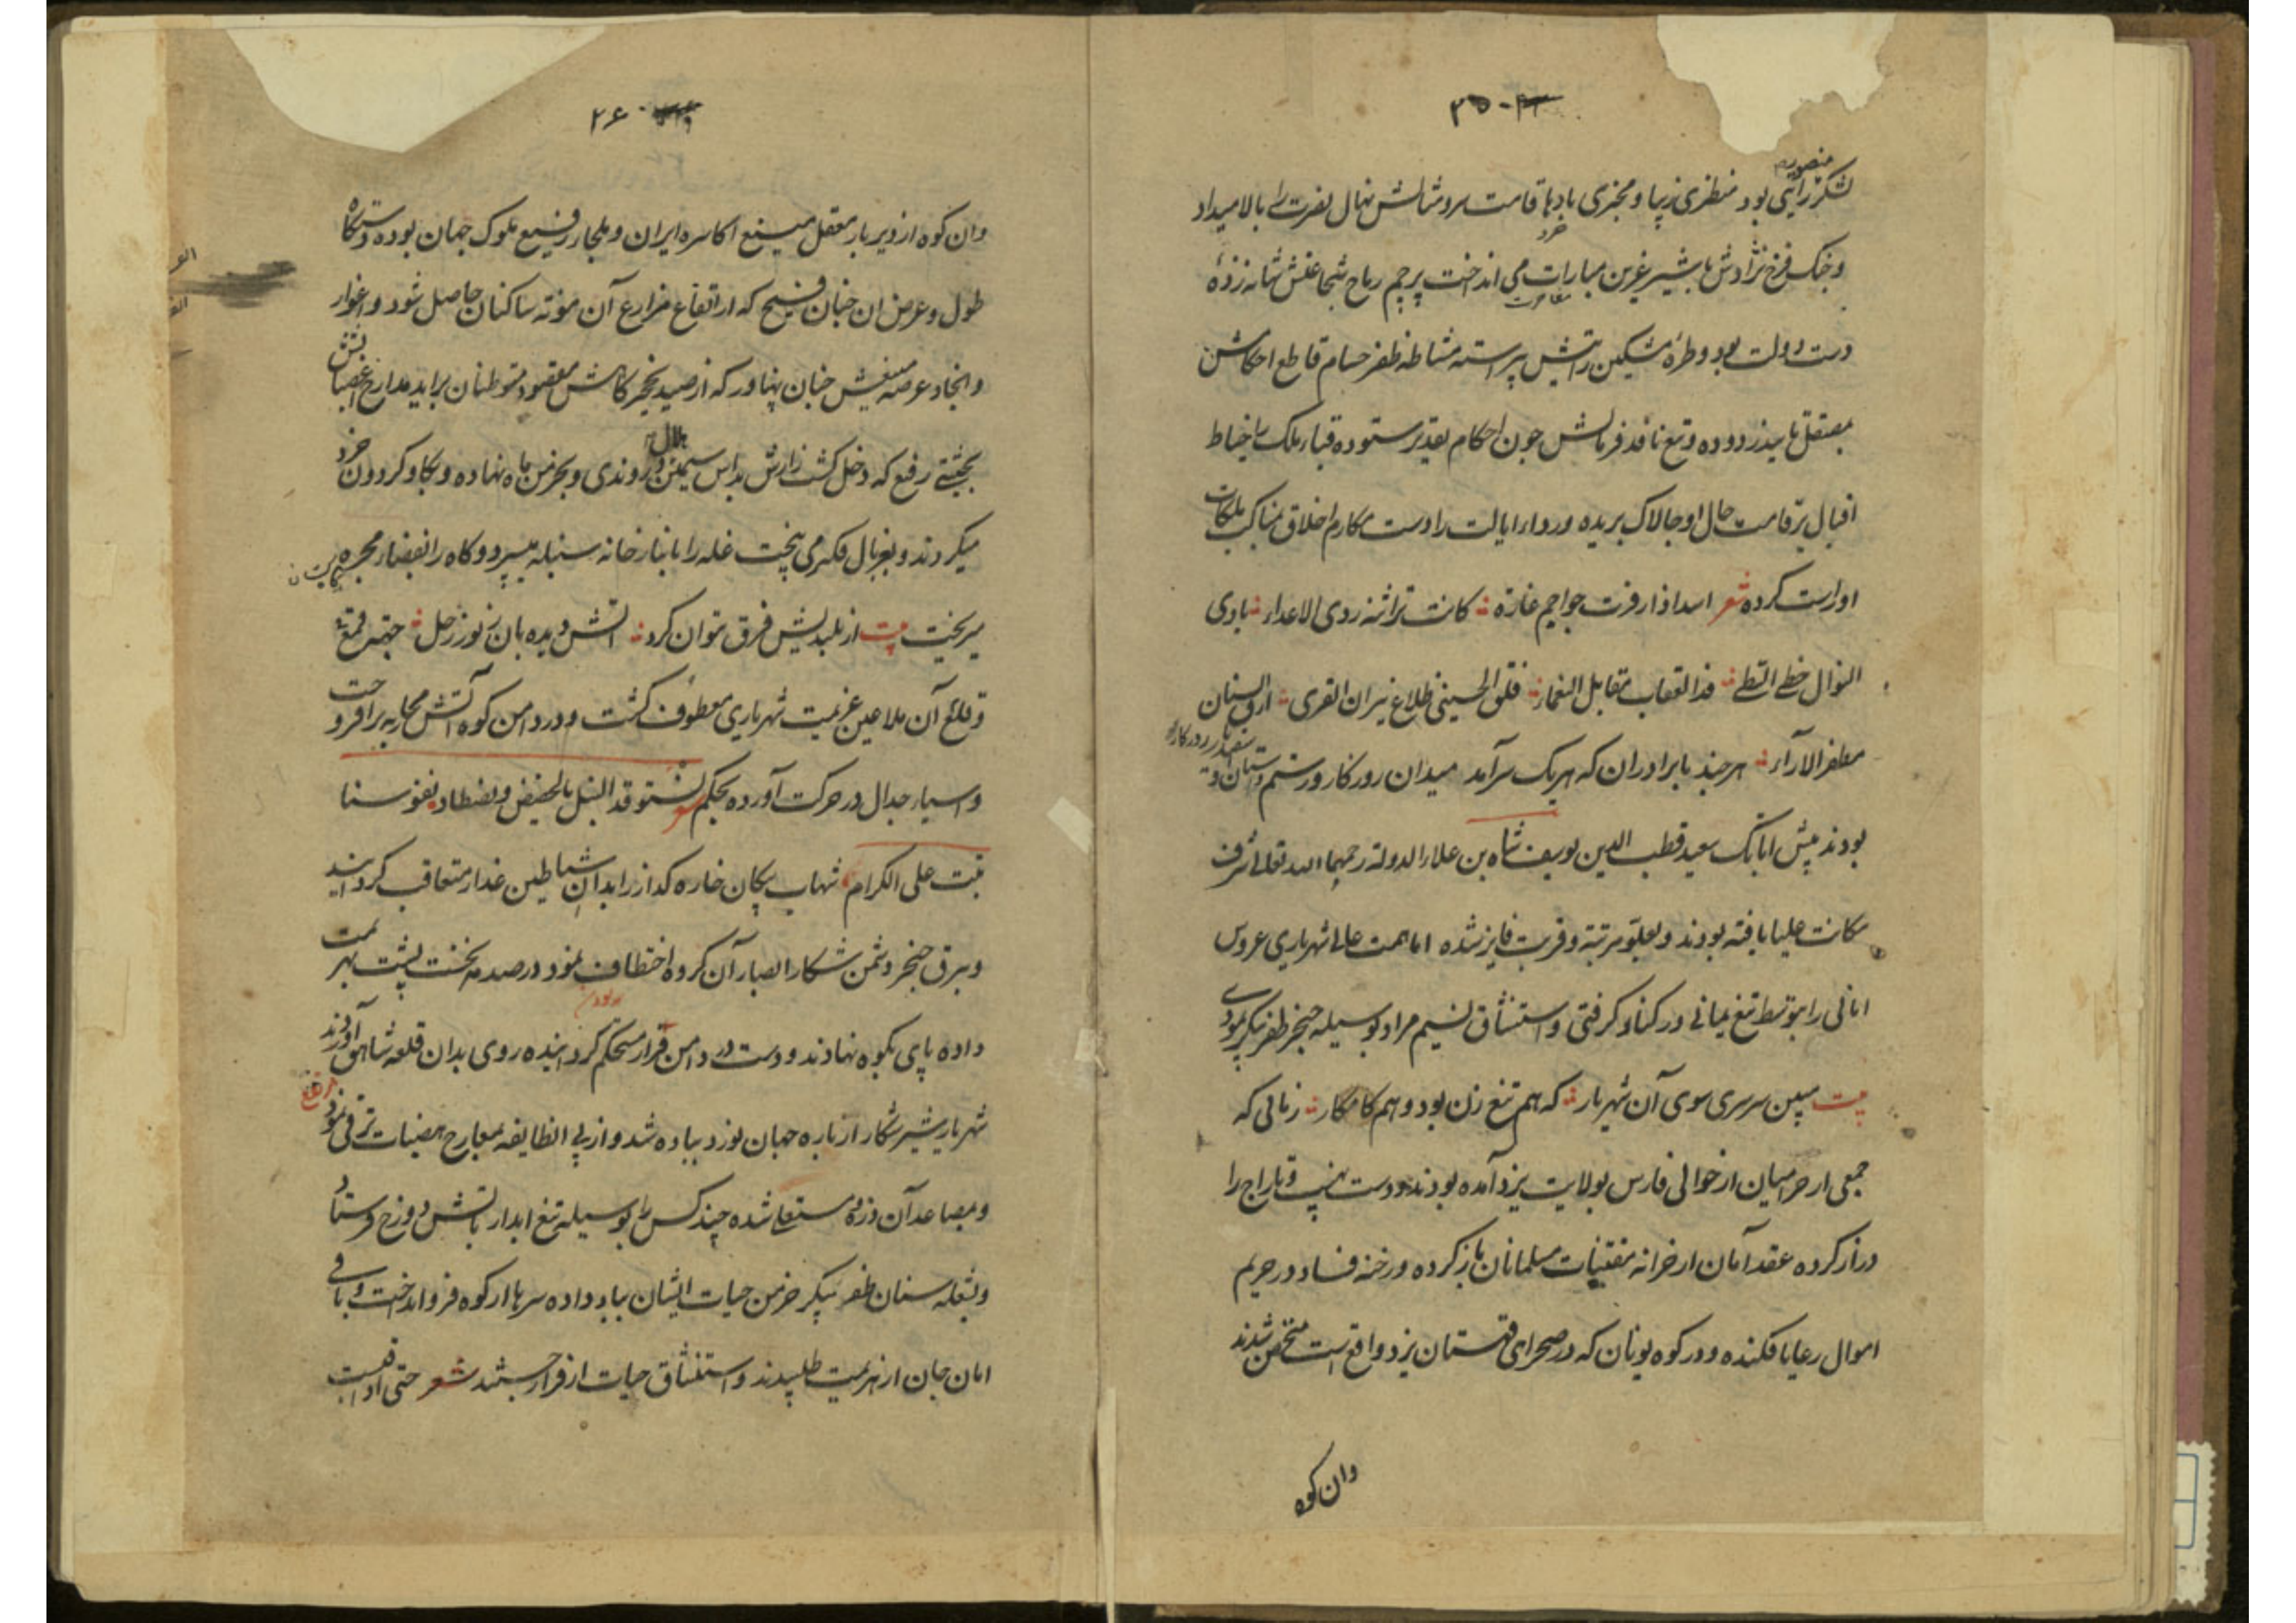 ۲۵
منصوره
لشکر رایتی بود منظری زیبا و مخبری بادها قامت سرو شمالش نهال نصرت را بالا میداد
و جنک فرخ نژادش با شیر غرین مبارات می انداخت پرچم رماح شجاعتش شانه زده
دست دولت بود و طره مشکین رایتش پیراسته مشاطه ظفر حسام قاطع احکامش
بمصقل تایید زدوده و تیغ نافذ فرمانش چون احکام تقدیر ستوده قباء ملک را خیاط
اقبال بر قامت حال او چالاک بریده و رداء ایالت را دست مکارم اخلاق بمناکب ملکات
او راست کرده شعر اسد اذا زفرت جواجم غازه کانت تراثنه ردی الاعداء بادی
النوال خطی القطی فذ العقاب مقابل النعماء فلق الحسینی طلاع نیران القری
مظفر الآراء هر چند با برادران که هر یک سرآمد میدان روزکار و رستم دستان و
بودند پیش اتابک سعید قطب الدین یوسف شاه بن علاء الدوله رحمهما الله تعالی شرف
مکانت علیا یافته بودند و بعلو مرتبه و قربت فایز شده اما همت عالی شهریاری عروس
امانی را بتوسط تیغ یمانی در کنار کرفتی و استنشاق نسیم مراد بوسیله خنجر ظفر پیکر نمودی
بیت ببین سرسری سوی آن شهریار که هم تیغ زن بود و هم کامکار زمانی که
جمعی از حرامیان از حوالی فارس بولایت یزد آمده بودند و دست نهب و تاراج را
دراز کرده عقد امان از خزانه مقتنیات مسلمانان باز کرده و رخنه فساد در حریم
اموال رعایا فکنده و در کوه یونان که در صحرای قهستان یزد واقع است متحصن شدند
وان کوه
۲۶
وان کوه از دیر باز معقل منیع اکاسره ایران و ملجاء رفیع ملوک جهان بوده دستکاه
طول و عرض ان چنان فسیح که از ارتفاع مزارع آن مونه ساکنان حاصل شود و اغوار
و انجاد عرصه منعیش چنان پهناور که از صید نخجیرکاهش مقصود متوطنان براید مدارج اغصانش
بحیثیتی رفیع که دخل کشت زارش بداس سیمین هلال درو‌ندی و بخرمن ماه نهاده و بکاو کردون خرد
میکردند و بغربال فلک می بیخت غله را بانبار خانه سنبله میسپرد و کاه را بفضاء مجره
میریخت بیت از بلندیش فرق نتوان کرد آتش دیده بان ز نور زحل جهه قمع
و قلع آن ملاعین عزیمت شهریاری معطوف کشت و در دامن کوه آتش محاربه برافروخت
و اسیاء جدال در حرکت آورده بحکم شعر نستوقد النبل بالحضیض و نصطاد نفوسنا
بنت علی الکرام شهاب پیکان خاره کداز را بدان شیاطین غدار متعاقب کردانید
و ببرق خنجر دشمن شکار ابصار آن کروه اختطاف نمود در صدمه نخست پشت بهزیمت
داده پای بکوه نهادند و دست در دامن قرار مستحکم کردانیده روی بدان قلعه شاهق آوردند
شهریار شیر شکار از باره جهان نورد پیاده شد و از پی الطایفه بمعارج هضبات ترقی نمود
و بمصاعد آن ذروه مستعلی شده چند کس را بوسیله تیغ ابدار باتش دوزخ فرستاد
و بشعله سنان ظفر پیکر خرمن حیات ایشان بباد داده سرها از کوه فرو انداخت و باقی
امان جان از هزیمت طلبیدند و استنشاق حیات از فرار جستند شعر حتی اذا